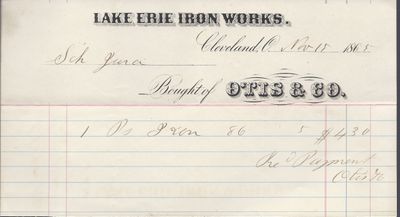 LAKE ERIE IRON WORKS.
Cleveland, O. Nov 18 1865
Sch Jura
Bought of OTIS & CO.
1 Ps Iron 86 5 $4.30
Rec'd Payment
Otis & Co